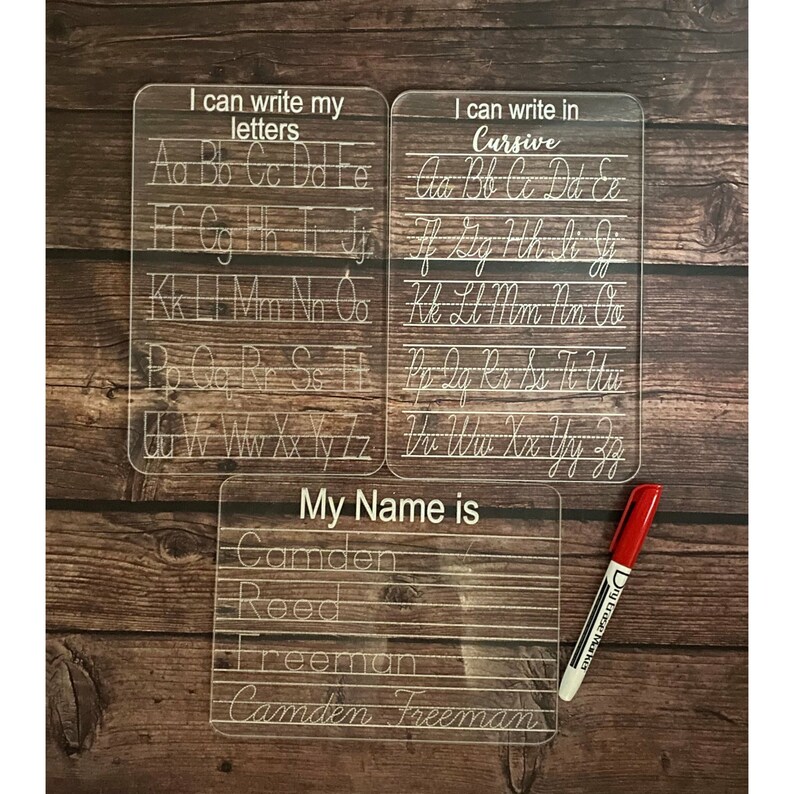 I can write my
letters
Aa Bb Cc Dd Ee
Ff Gg Hh Ii Jj
Kk Ll Mm Nn Oo
Pp Qq Rr Ss Tt
Uu Vv Ww Xx Yy Zz
I can write in
Cursive
Aa Bb Cc Dd Ee
Ff Gg Hh Ii Jj
Kk Ll Mm Nn Oo
Pp Qq Rr Ss Tt Uu
Vv Ww Xx Yy Zz
My Name is
Camden
Reed
Freeman
Camden Freeman
Dry Erase Marker